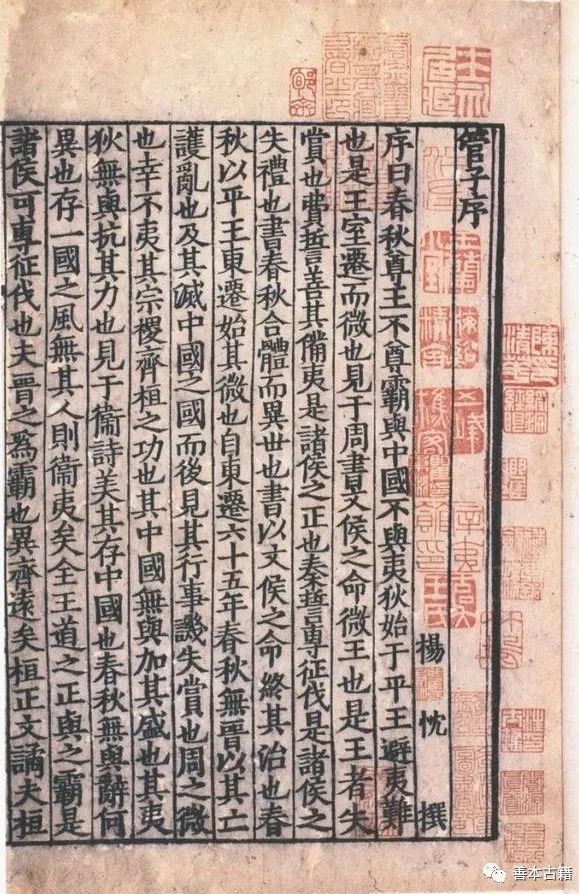 管子序
楊忱 撰
序曰春秋尊王不尊霸與中國不與夷狄始于平王避夷難
也是王室遷而微也見于周書文侯之命微王也是王者失
賞也費誓善其備夷是諸侯之正也秦誓專征伐是諸侯之
失禮也書春秋合體而異世也書以文侯之命終其治也春
秋以平王東遷始其微也自東遷六十五年春秋無晉以其亡
護亂也及其滅中國之國而後見其行事譏失賞也周之微
也幸不夷其宗稷齊桓之功也其中國無與加其盛也其夷
狄無與抗其力也見于衞詩美其存中國也春秋無與辭何
異也存一國之風無其人則衞夷矣全王道之正與之霸是
諸侯可專征伐也夫晉之爲霸也異齊遠矣桓正文譎夫桓
善本古籍